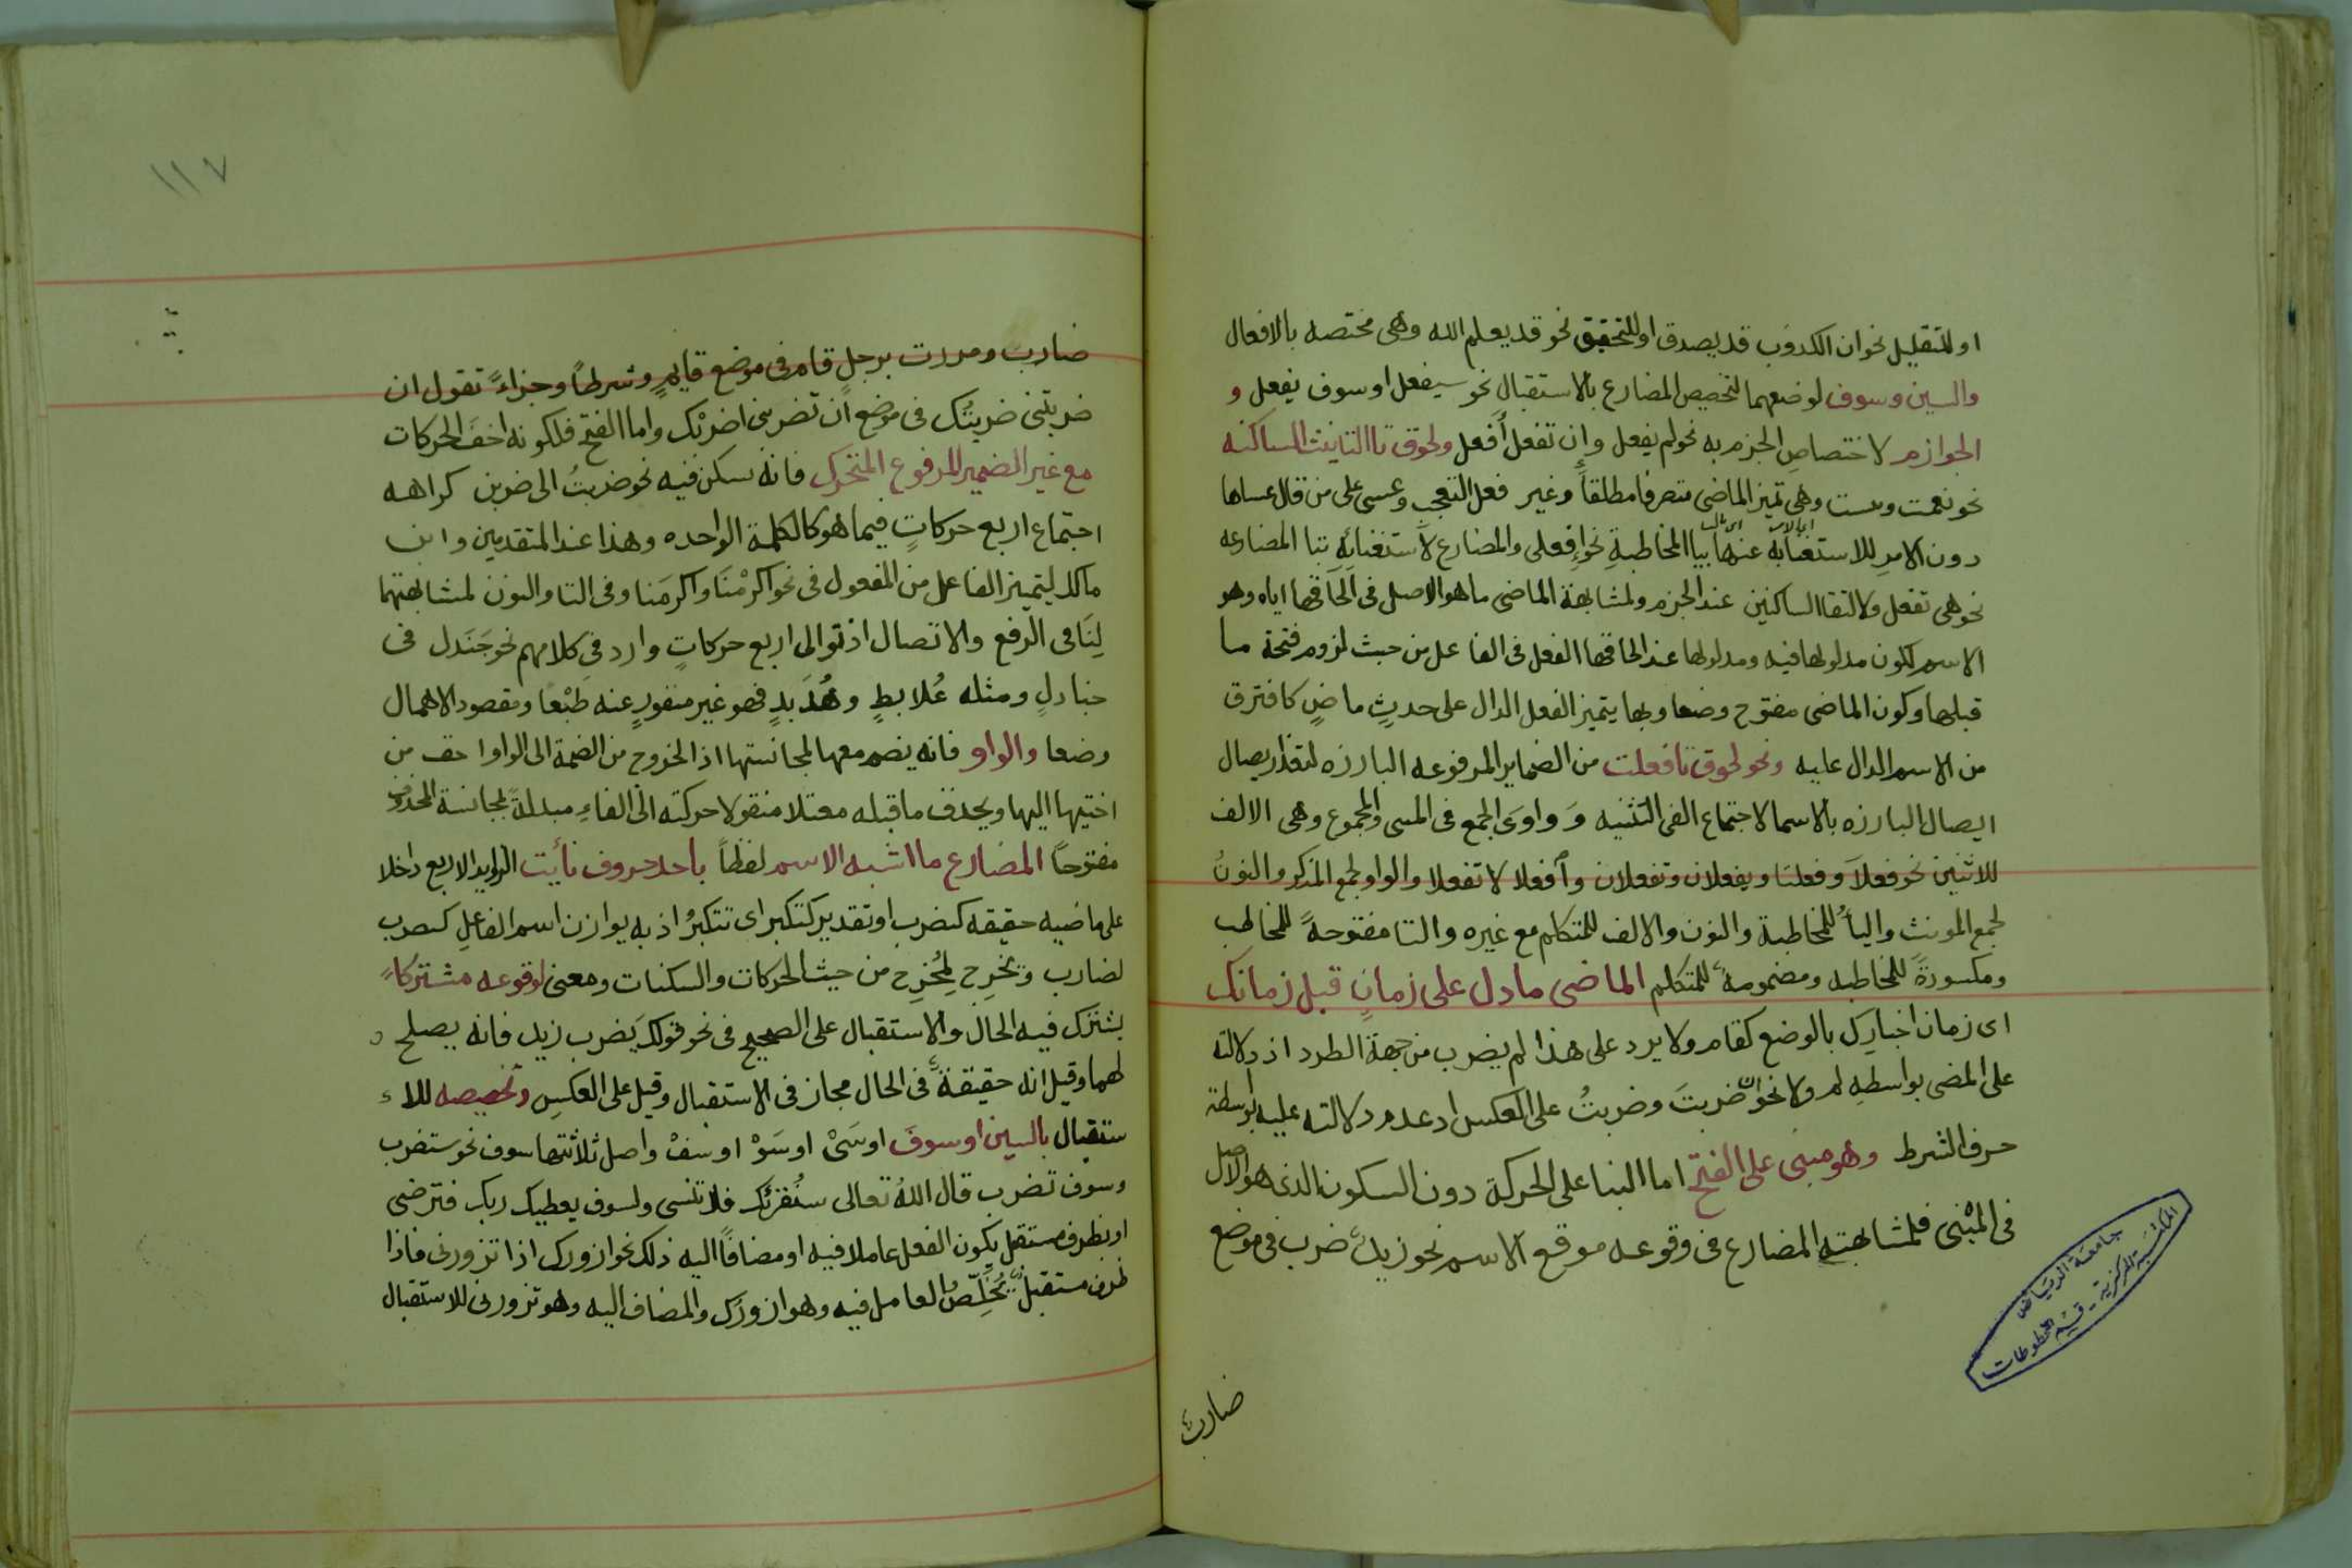 او للتقليل نحو ان الكذوب قد يصدق او للتحقيق نحو قد يعلم الله وهى مختصه بالافعال
والسين وسوف لوضعهما لتخصيص المضارع بالاستقبال نحو سيفعل او سوف يفعل و
الجوازم لاختصاص الجزم به نحو لم يفعل وان تفعل أفعل ولحوق تا التانيث الساكنه
نحو نعمت وبست وهى تميز الماضى متصرفا مطلقاً وغير فعل التعجب وعسى على من قال عساها
دون الامرِ للاستغنائه عنها بيا المخاطبةِ نحو إفعلى والمضارع لاستغنائِهِ بتا المضارعه
نحو هى تفعل ولالتقا الساكنين عند الجزم ولمشابهة الماضى ما هو الاصل فى الحاقها اياه وهو
الاسم لكون مدلولها فيه ومدلولها عند الحاقها الفعل فى الفاعل من حيث لزوم فتحة ما
قبلها وكون الماضى مفتوح وضعا وبها يتميز الفعل الدال على حدثٍ ماضٍ كافترق
من الاسم الدال عليه ونحو لحوق تا فعلت من الضماير المرفوعه البارزه لتعذر يصال
ايصال البارزه بالاسما لاجتماع الفى التثنيه وَ واوى الجمع فى المسى والمجموع وهى الالف
للاثنين نحو فعلاَ وفعلتا ويفعلان وتفعلان وافعلا لا تفعلا والواو لجمع المذكر والنونُ
لجمع المونث واليأُ للمخاطبة والنون والالف للمتكلم مع غيره والتا مفتوحةً للمخاطب
ومكسورةً للمخاطبه ومضمومةً للمتكلم الماضى ما دل على زمانٍ قبل زمانك
اى زمان اخبارك بالوضع كقام ولا يرد على هذا لم يضرب من جهة الطرد اذ دلالته
على المضى بواسطهِ لم ولا نحو ان ضربتَ وضربتُ على العكس اذ عدم دلالته عليه بواسطة
حرف الشرط وهو مبنى على الفتح اما البنا على الحركة دون السكون الذى هو الاصل
فى المبْنى فلمشابهتهِ المضارع فى وقوعه موقع الاسم نحو زيدٌ ضرب فى موضع
ضاربٌ
المكتبة المركزية - قسم المخطوطات
جامعة الرياض
١١٧
ضارب ومررت برجلٍ قام فى موضع قايمٍ وشرطاً وجزاءً تقول ان
ضربتنى ضربتُك فى موضع ان تضربنى اضربْك واما الفتح فلكونه اخفَ الحركات
مع غير الضمير المرفوع المتحرك فانه سكن فيه نحو ضربتُ الى ضربن كراهه
اجتماع اربع حركاتٍ فيما هو كالكلمة الواحده وهذا عند المتقدمين وابن
مالك ليتميز الفاعل من المفعول فى نحو اكرمْنَا واكرمَنا وفى التا والنون لمشابهتهما
لِنَا فى الرفع والاتصال اذ توالى اربع حركاتٍ وارد فى كلامهم نحو جَنَدل فى
جنادلٍ ومثله عُلابطٍ وهُدَبدٍ فهو غير منفورٍ عنه طبْعا ومقصود الاهمال
وضعا والواو فانه يضم معها لمجانستها اذ الخروج من الضمة الى الواو اخف من
اختيها اليها ويحذف ما قبله معتلا منقولا حركته الى الفاءِ مبدلةً لمجانسة المحذوف
مفتوحاً المضارع ما اشبه الاسم لفظاً باحد حروف نأيت الزوايد الاربع داخلا
على ماضيه حقيقه كنضرب او تقدير كتكبر اى تتكبرُ اذ به يوازن اسم الفاعلِ كيضرب
لضارب وتخرِج لِمُخرِج من حيث الحركات والسكنات ومعنى لوقوعه مشتركاً
يشترك فيه الحال والاستقبال على الصحيح فى نحو قولك يَضرب زيد فانه يصلح
لهما وقيل انه حقيقةً فى الحال مجاز فى الاستقبال وقيل على العكس وتخصيصه للا
ستقبال بالسين او سوفَ او سَىْ او سَوْ او سفْ واصل ثلاثتها سوف نحو ستضرب
وسوف تضرب قال اللهُ تعالى سنُقرئك فلا تنسى ولسوف يعطيك ربك فترضى
او بظرف مستقبل يكون الفعل عاملا فيه او مضافاً اليه ذلك نحو ازورك اذا تزورنى فاذا
ظرف مستقبلٌ يُخَلِّصُ العامل فيه وهو ازورك والمضاف اليه وهو تزورنى للاستقبال